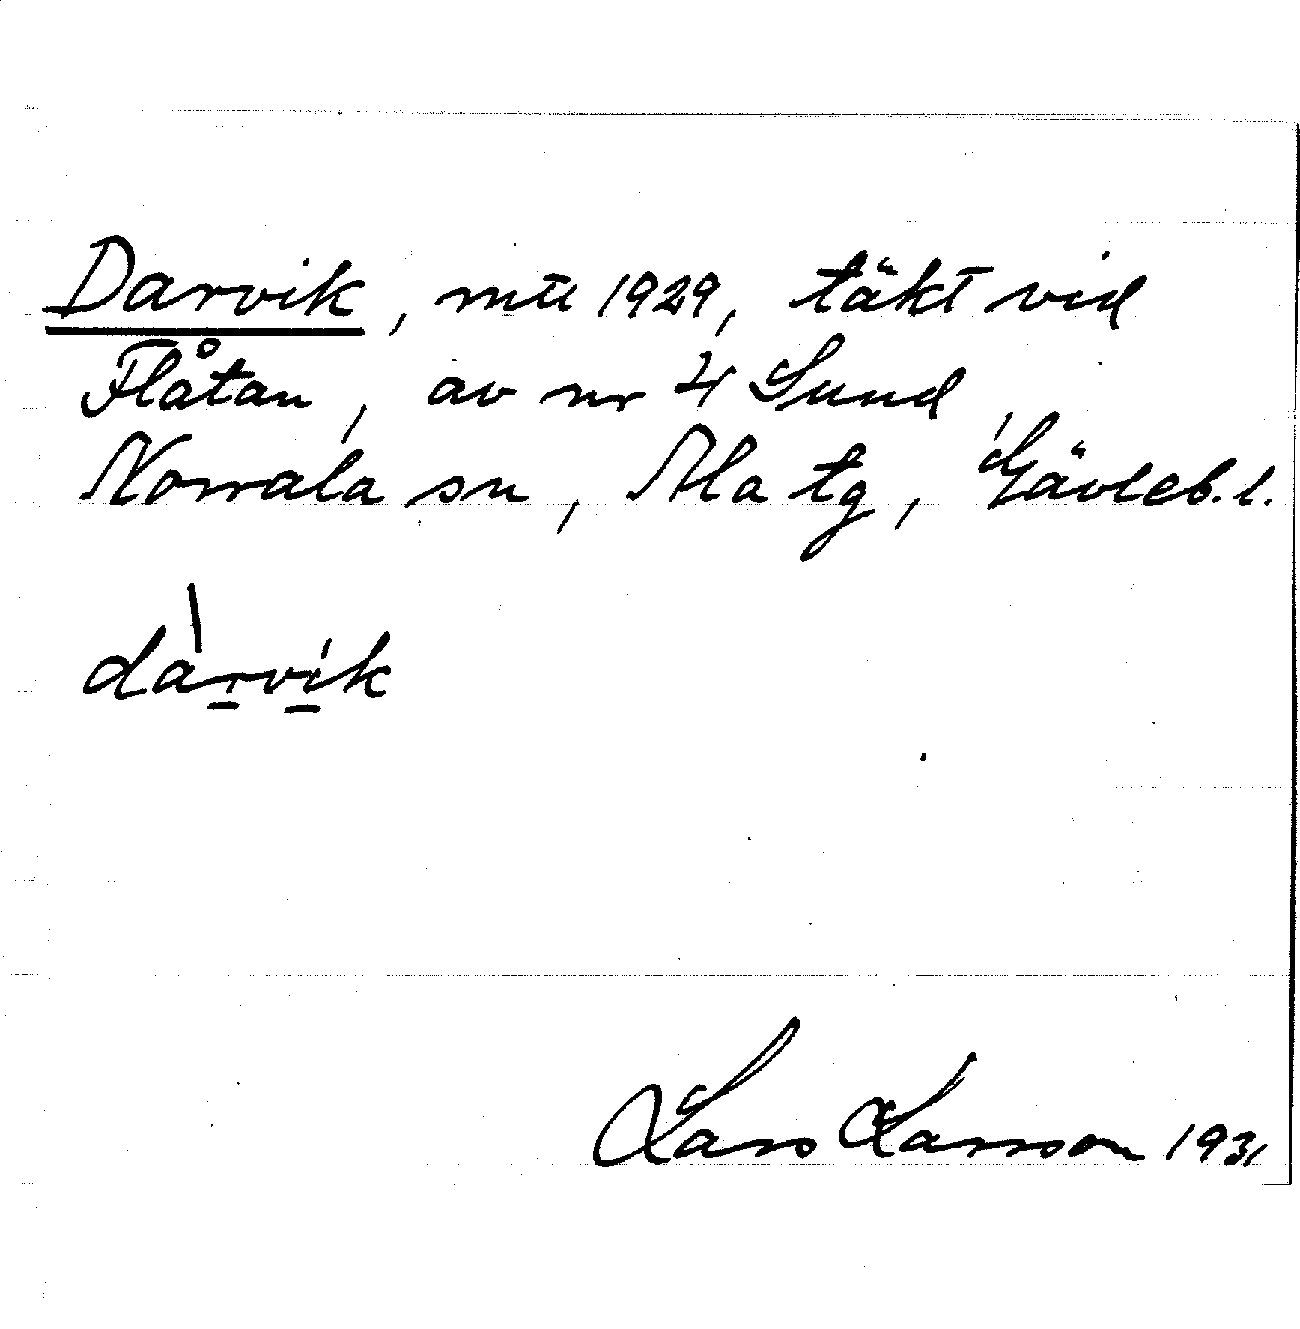 Darvik, mtl 1929, täkt vid
Flåtan, av nr 4 Sund,
Norrala sn, Ala tg, Gävleb. l.
dàrvik
Lars Larsson 1931